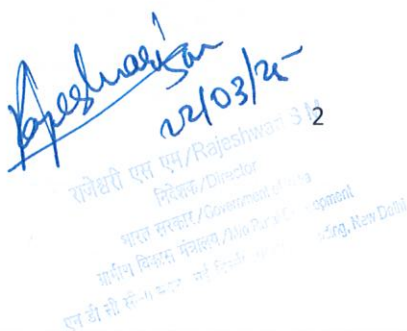 Rajeshwari SM
22/03/25
2
राजेश्वरी एस एम/Rajeshwari S M
निदेशक/Director
भारत सरकार/Government of India
ग्रामीण विकास मंत्रालय/M/o Rural Development
एन डी सी सी-II New Delhi